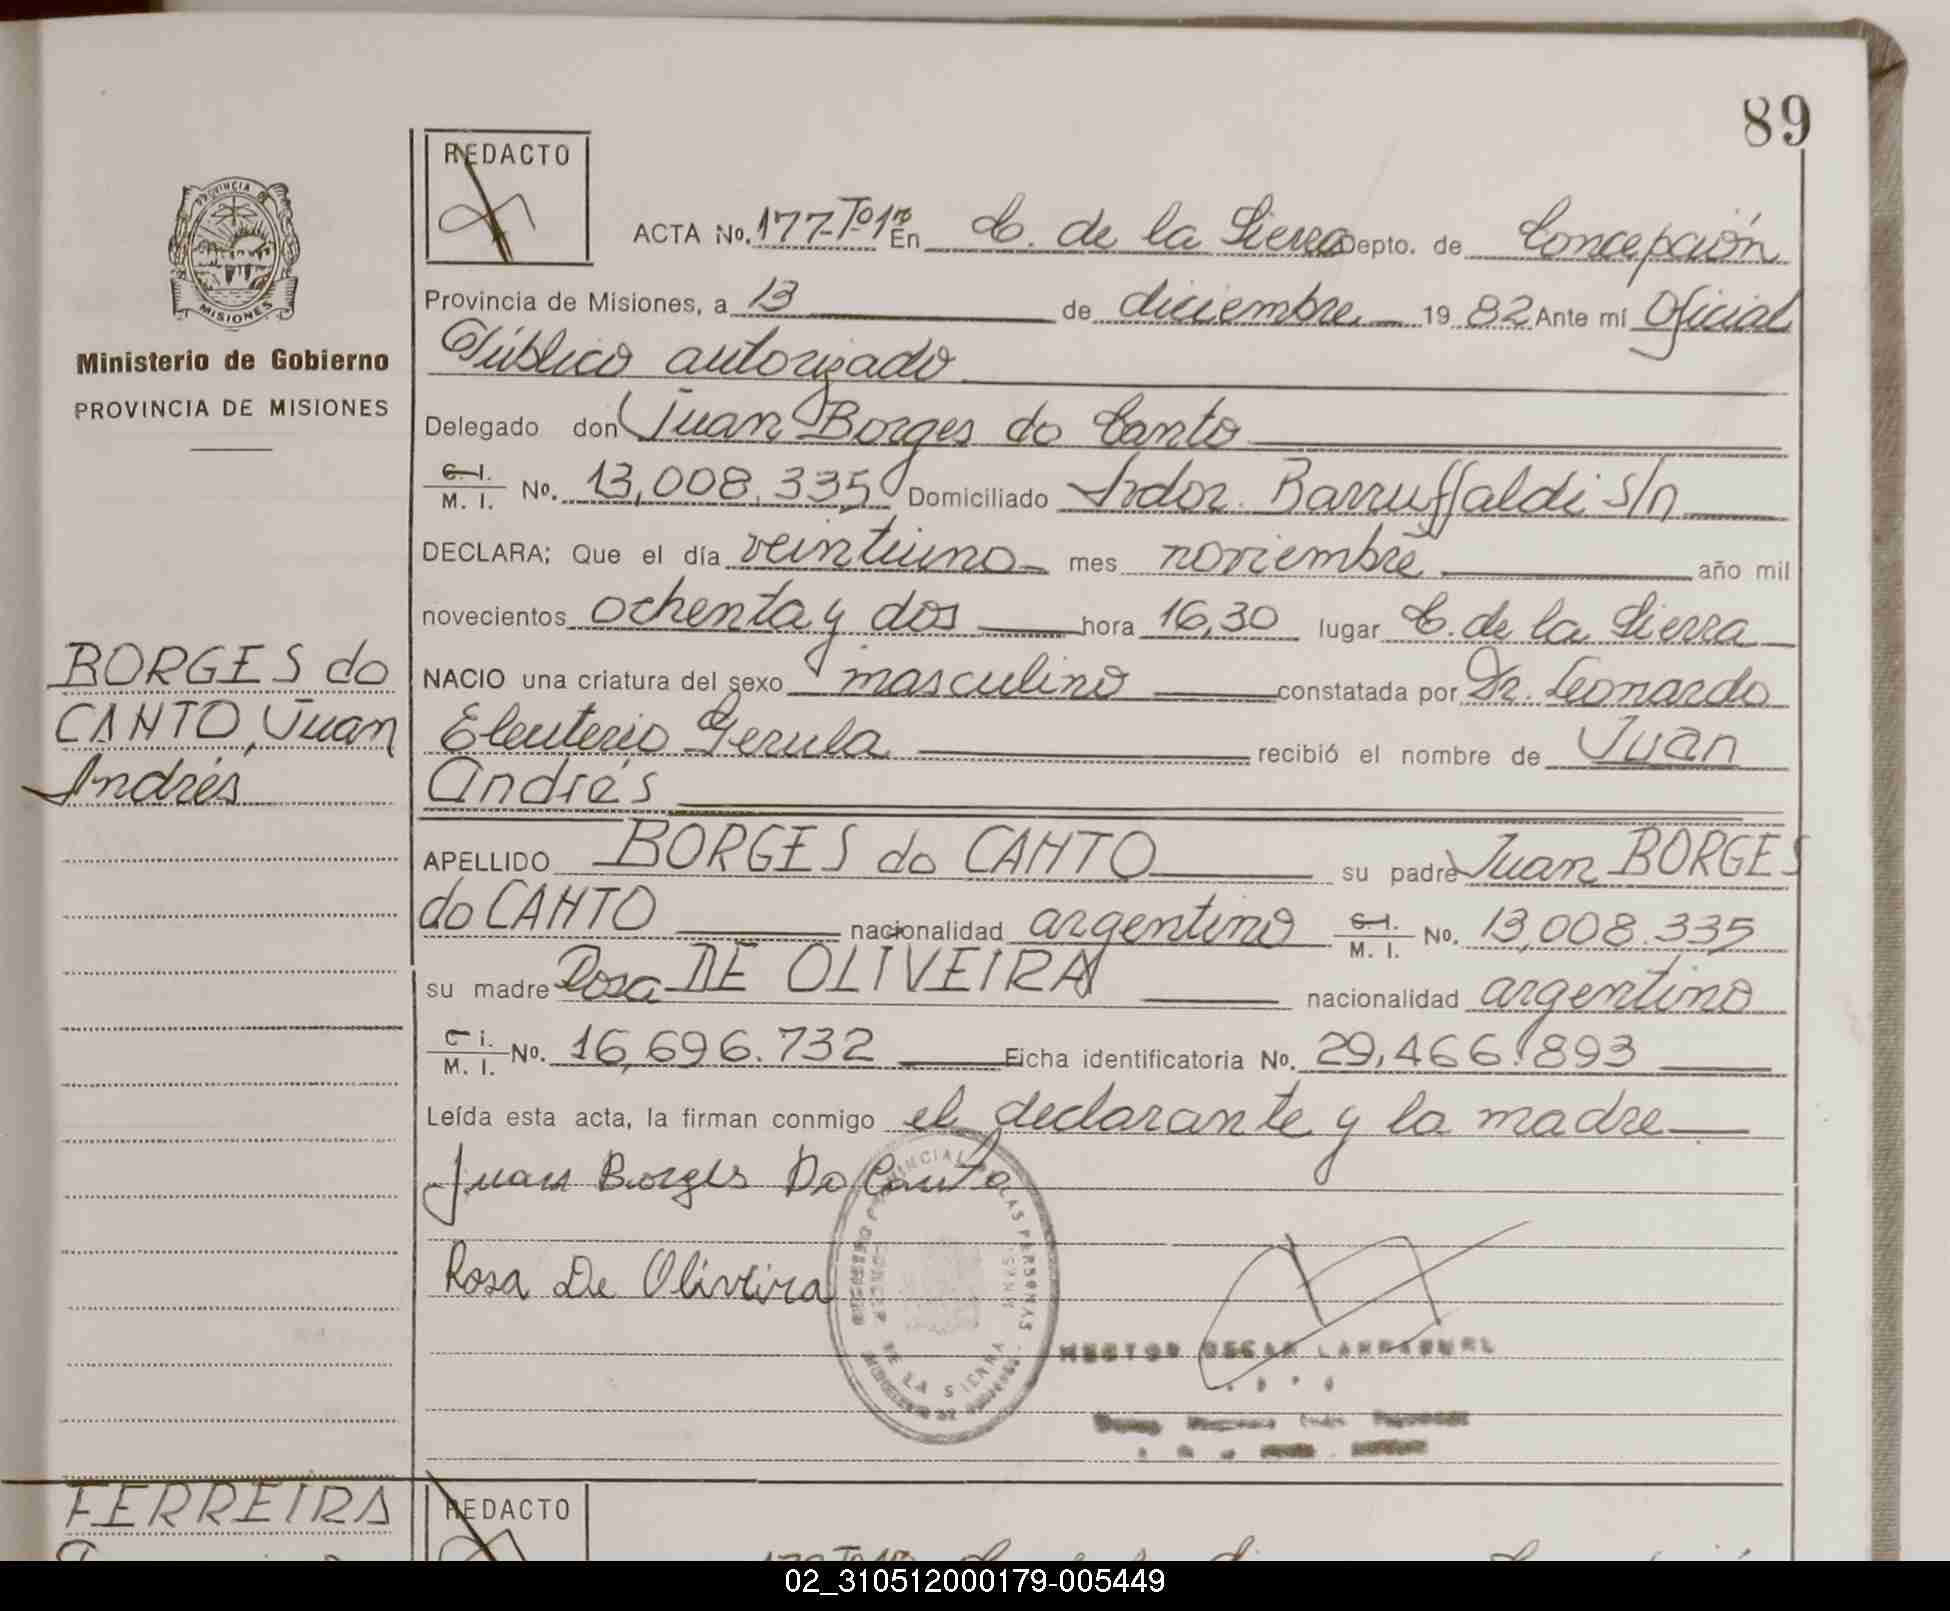 89
PROVINCIA DE
MISIONES
Ministerio de Gobierno
PROVINCIA DE MISIONES
BORGES do
CANTO, Juan
Andrés
REDACTO
ACTA No. 177-Tº1º En C. de la Sierra Depto. de Concepción
Provincia de Misiones, a 13 de diciembre 1982 Ante mí Oficial
Público autorizado
Delegado don Juan Borges do Canto
C. I. M. I. No. 13,008.335 Domiciliado Andor. Barruffaldi s/n
DECLARA; Que el día veintiuno mes noviembre año mil
novecientos ochenta y dos hora 16,30 lugar C. de la Sierra
NACIO una criatura del sexo masculino constatada por Dr. Leonardo
Eleuterio Gerula recibió el nombre de Juan
Andrés
APELLIDO BORGES do CANTO su padre Juan BORGES
do CANTO nacionalidad argentino C. I. M. I. No. 13,008.335
su madre Rosa DE OLIVEIRA nacionalidad argentino
C. I. M. I. No. 16,696.732 Ficha identificatoria No. 29,466.893
Leída esta acta, la firman conmigo el declarante y la madre
Juan Borges Do Canto
Rosa De Oliveira
PROVINCIAL DE LAS PERSONAS
DE LA SIERRA
HECTOR OSCAR
FERREIRA
REDACTO
02_310512000179-005449